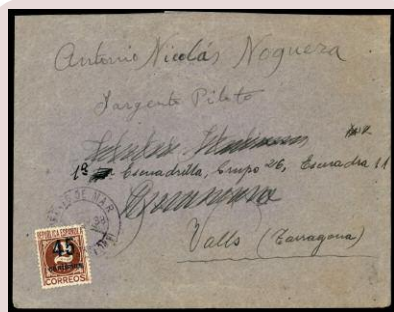 Antonio Nicolás Noguera
Sargento Piloto
1ª Escuadrilla, Grupo 26, Escuadra 11
Valls (Tarragona)
DE MAR
REPUBLICA ESPAÑOLA
45
CENTIMOS
2
CORREOS